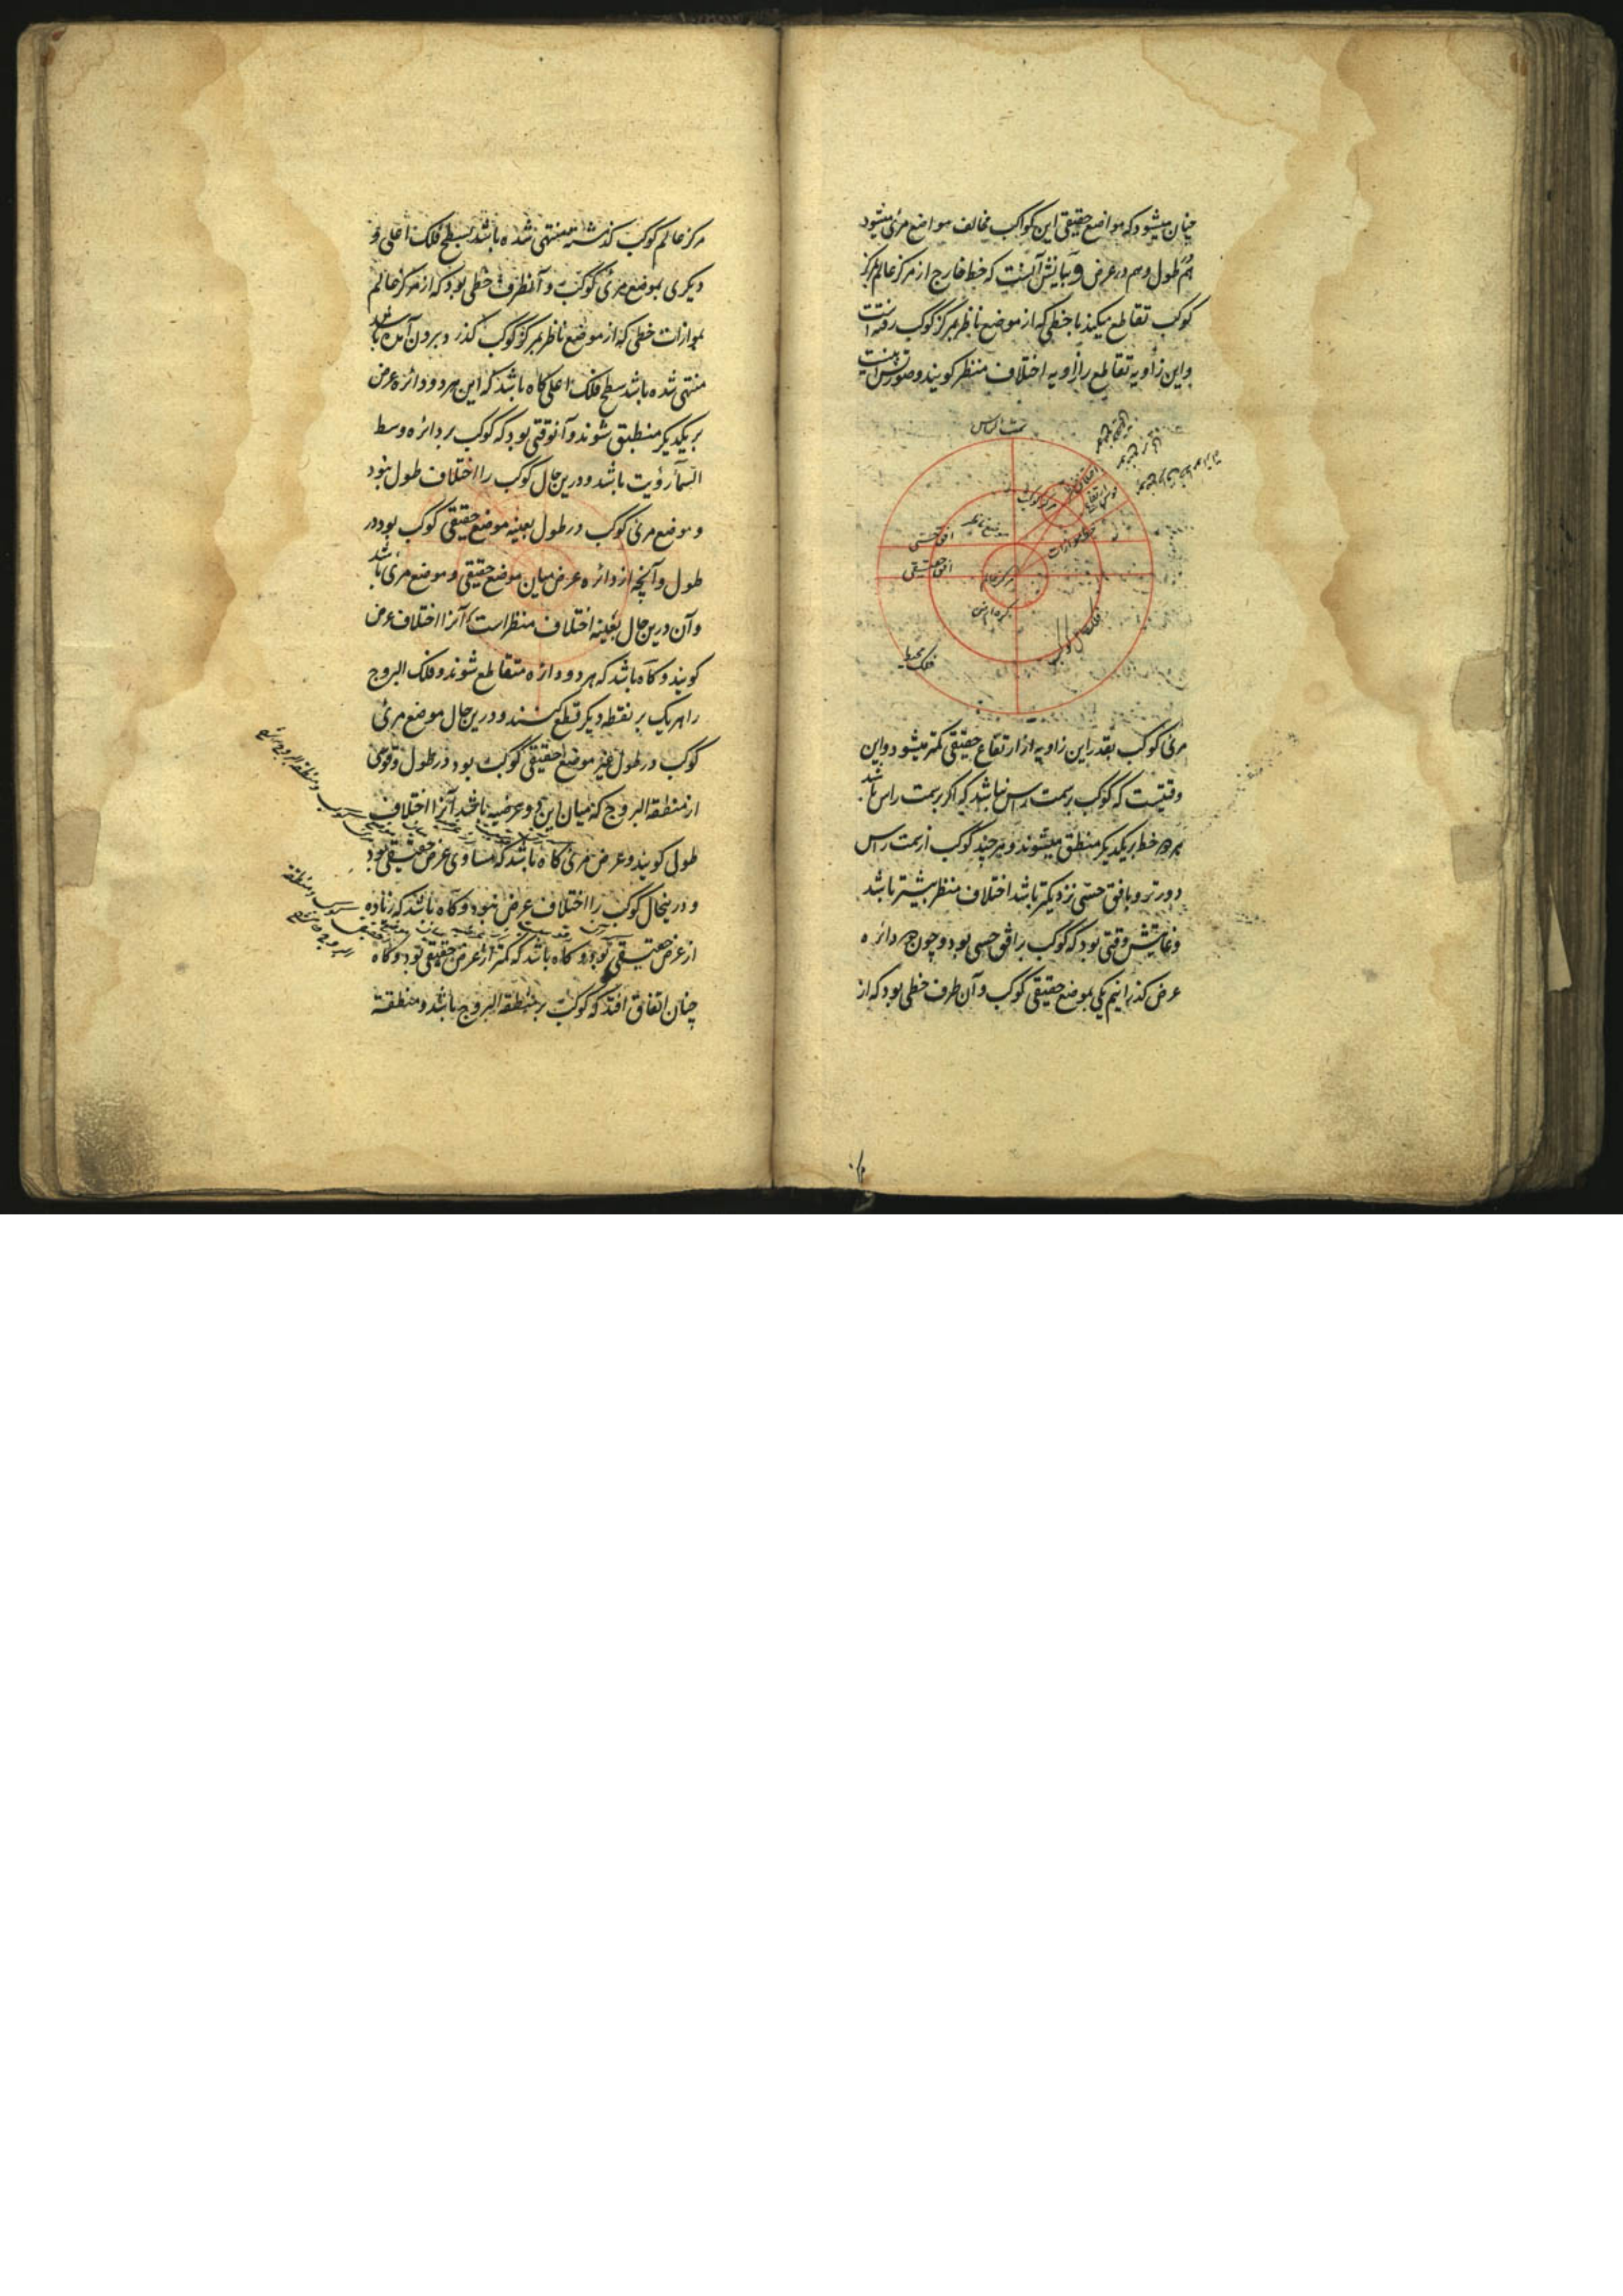 چنان میشود که مواضع حقیقی این کواکب مخالف مواضع مرئی میشود
هم طول و هم در عرض و بیانش آنست که خط خارج از مرکز عالم بمرکز
کوکب تقاطع میکند با خطی که از موضع ناظر بمرکز کوکب رفته است
و این زاویه تقاطع را زاویه اختلاف منظر کویند و صورتش اینست
سمت الراس
مرکز کوکب
موضع ناظر
افق حسی
افق حقیقی
خط موازات
مرکز عالم
کره ارض
فلک محیط
مرئی کوکب بقدر این زاویه از ارتفاع حقیقی کمتر میشود و این
وقتیست که کوکب بر سمت راس نباشد که اکر بر سمت راس باشد
هر دو خط بر یکدیکر منطبق میشوند و هر چند کوکب از سمت راس
دورتر و بافق حسی نزدیکتر باشد اختلاف منظر بیشتر باشد
و غایتش وقتی بود که کوکب بر افق حسی بود و چون دو دائره
عرض کذرانیم یکی بموضع حقیقی کوکب و آن طرف خطی بود که از
مرکز عالم کوکب کذشته منتهی شده باشد بسطح فلک اعلی و
دیکری بموضع مرئی کوکب و آنطرف خطی بود که از مرکز عالم
بموازات خطی که از موضع ناظر بمرکز کوکب کذرد و برون آمده باشد
منتهی شده باشد بسطح فلک اعلی کاه باشد که این هر دو دائره عرض
بر یکدیکر منطبق شوند و آنوقتی بود که کوکب بر دائره وسط
السماء رؤیت باشد و درین حال کوکب را اختلاف طول نبود
و موضع مرئی کوکب در طول بعینه موضع حقیقی کوکب بود در
طول و آنچه از دائره عرض میان موضع حقیقی و موضع مرئی باشد
و آن درین حال بعینه اختلاف منظر است آنرا اختلاف عرض
کویند و کاه باشد که هر دو دائره متقاطع شوند و فلک البروج
را هر یک بر نقطه دیکر قطع کنند و درین حال موضع مرئی
کوکب در طول غیر موضع حقیقی کوکب بود در طول و قوسی
از منطقة البروج که میان این دو عرضیه باشد آنرا اختلاف
طولی کویند و عرض مرئی کاه باشد که مساوی عرض حقیقی بود
و درینحال کوکب را اختلاف عرض نبود و کاه باشد که زیاده
از عرض حقیقی بود و کاه باشد که کمتر از عرض حقیقی بود و کاه
چنان اتفاق افتد که کوکب بر منطقة البروج باشد و منطقة